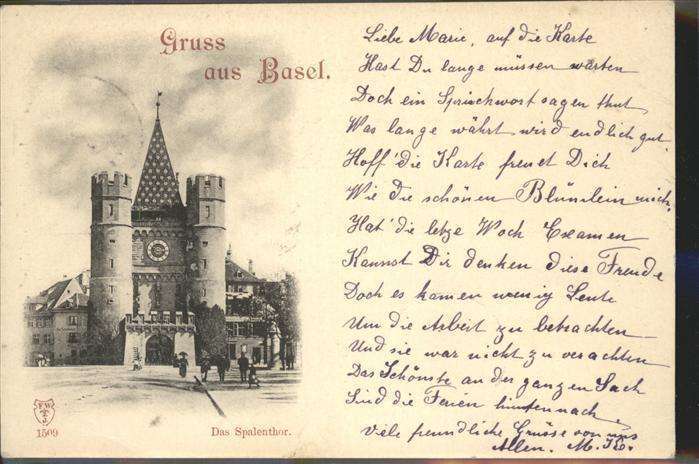 Gruss
aus Basel.
Liebe Marie, auf die Karte
Hast Du lange müssen warten
Doch ein Sprischwort sagen thut
Was lange währt wird endlich gut.
Hoff' die Karte freuet Dich
Wie die schönen Blümlein mich,
Hat' die letze Woch Examen
Kannst Dir denken diese Freude
Doch es kamen wenig Leute
Um die Arbeit zu betrachten
Und sie war nicht zu verachten
Das Schönste an der ganzen Sach
Sind die Ferien hintennach.
Viele freundliche Grüsse von uns
Allen. M.
1509
Das Spalenthor.